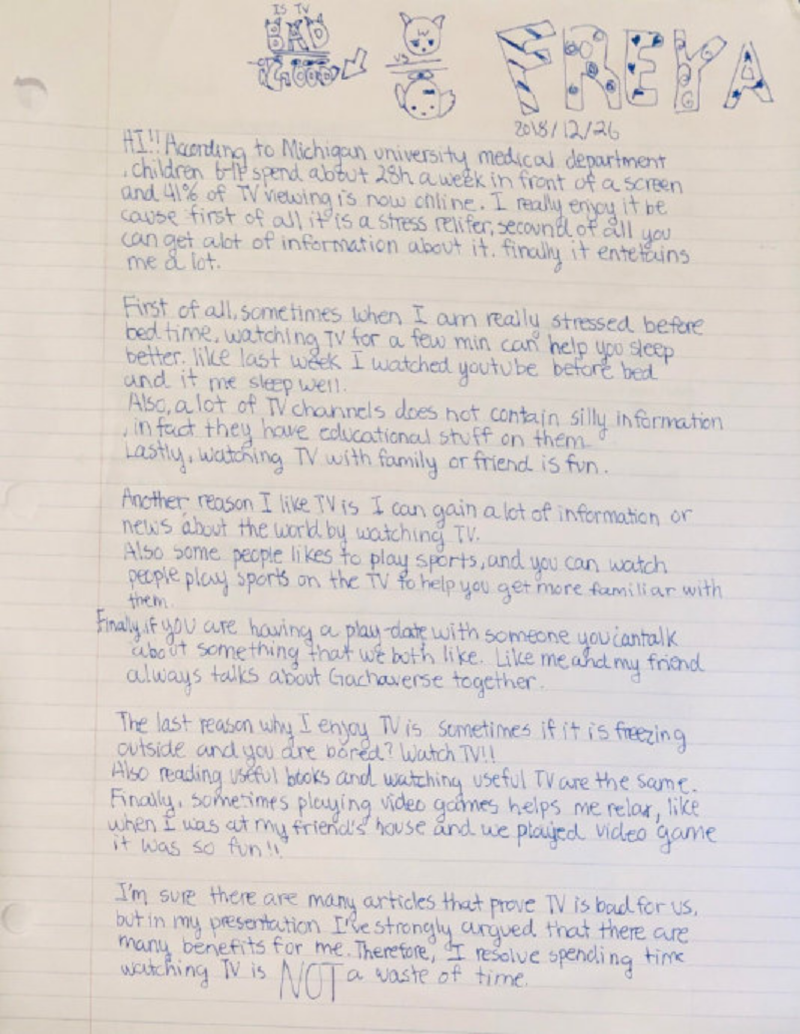 IS TV
BAD
VS
FREYA
2018/12/26
HI!! According to Michigan university medical department
, children 6-11 spend about 28h a week in front of a screen
and 41% of TV viewing is now online. I really enjoy it be
cause first of all it is a stress relifer, secound of all you
can get alot of information about it. finally it entetains
me a lot.
First of all, sometimes when I am really stressed before
bed time, watching TV for a few min can help you sleep
better. like last week I watched youtube before bed
and it me sleep well.
Also, a lot of TV channels does not contain silly information
, in fact they have educational stuff on them.
Lastly, watching TV with family or friend is fun.
Another reason I like TV is I can gain a lot of information or
news about the world by watching TV.
Also some people likes to play sports, and you can watch
people play sports on the TV to help you get more familiar with
them.
Finally, if you are having a play-date with someone you cantalk
about something that we both like. Like me and my friend
always talks about Gachaverse together.
The last reason why I enjoy TV is sometimes if it is freezing
outside and you are bored? Watch TV!!
Also reading useful books and watching useful TV are the same.
Finally, sometimes playing video games helps me relax, like
when I was at my friend's house and we played video game
it was so fun!!
I'm sure there are many articles that prove TV is bad for us,
but in my presentation I've strongly argued that there are
many benefits for me. Therefore, I resolve spending time
watching TV is NOT a waste of time.